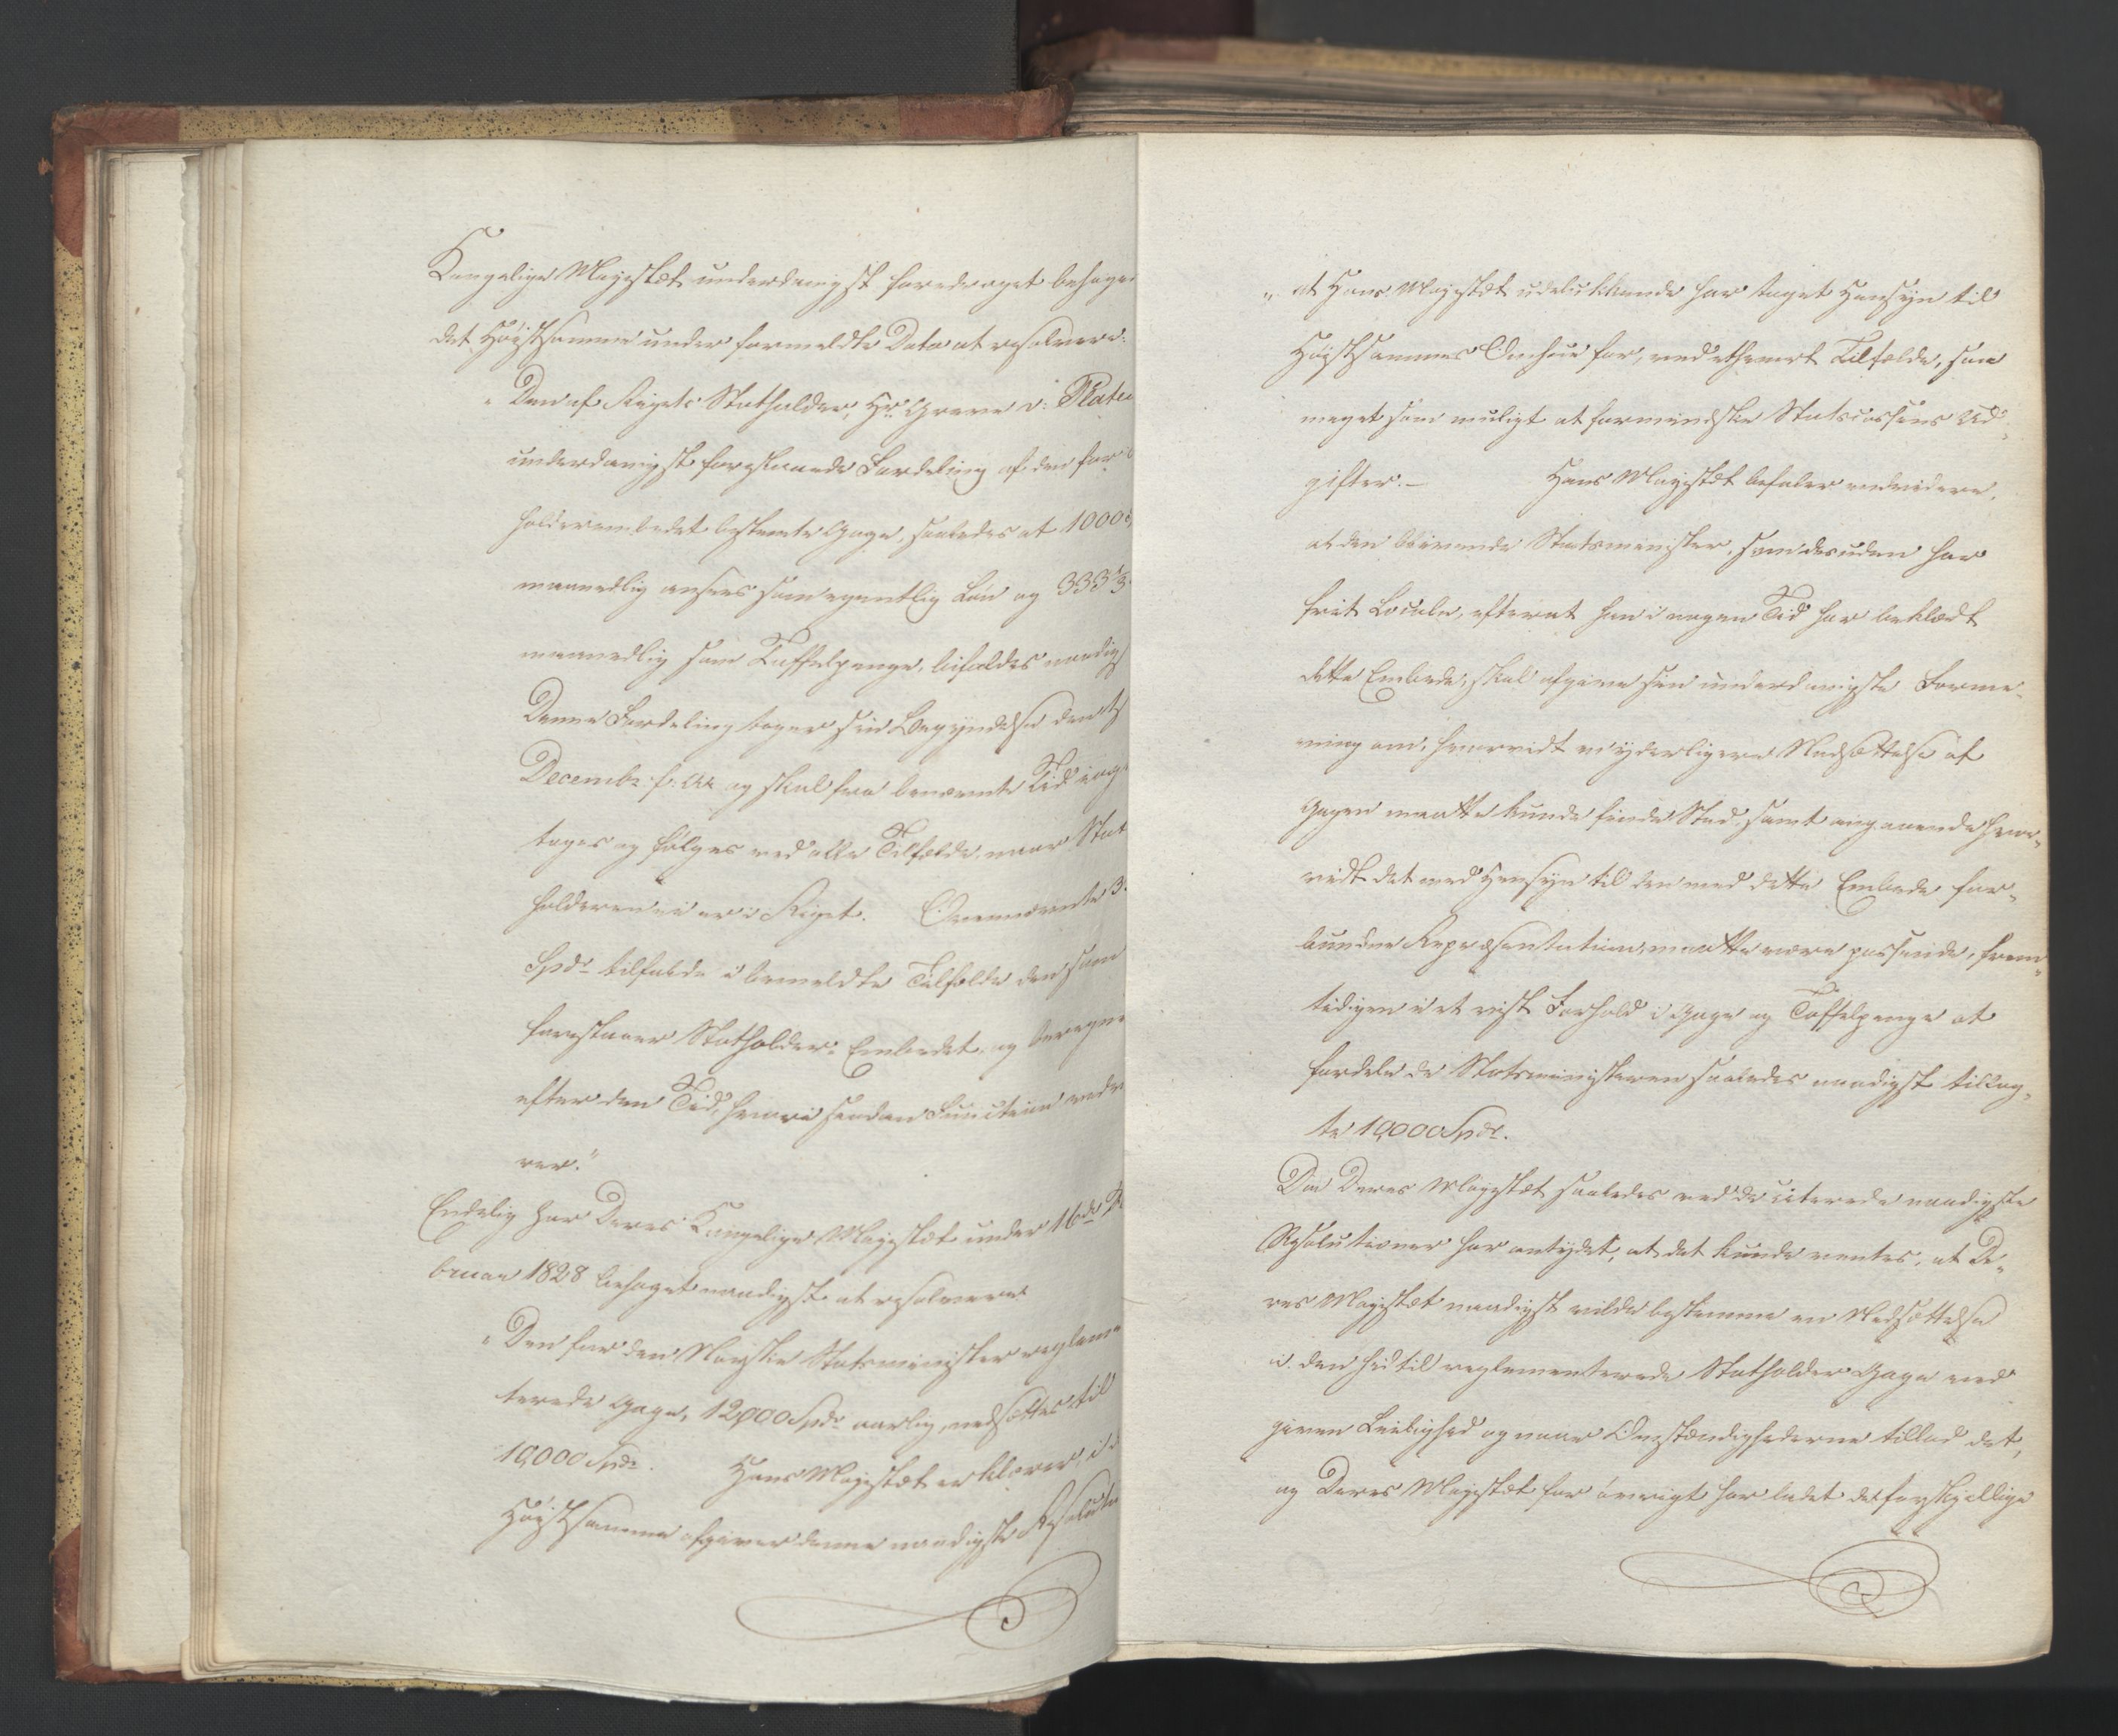 Kongelige Majestæt underdanigst foredraget behaget
det Høistsamme under formeldte Dato at resolvere:
„Den af Rigets Statholder, Hr Greve v: Platen
underdanigst foreslaaede Fordeling af den for
holderembedet bestemte Gage, saaledes at 1000
maanedlig ansees som egentlig Løn og 333⅓
maanedlig som Taffelpenge, bifaldes naadigst
Denne Fordeling tager sin Begyndelse den
Decembr f: Aar og skal fra benævnte Tid
tages og følges ved alle Tilfælde, naar Stat
holderen ei er i Riget. Ovennævnte
Spdr tilfalde i bemeldte Tilfælde den som
forestaaer Statholder-Embedet, og beregnes
efter den Tid, hvori saadan Function vedva
rer."
Endelig har Deres Kongelige Majestæt under 16de Fe
bruar 1828 behaget naadigst at resolvere
„Den for den Norske Statsminister reglemen
terede Gage, 12,000 Spdr aarlig, nedsættes til
10,000 Spdr. Hans Majestæt erklærer, i det
Høistsamme afgiver denne naadigste Resolution
„at Hans Majestæt udelukkende har taget Hensyn til
Høistsammes Omhue for, ved ethvert Tilfælde, saa
meget som muligt at formindske Statscassens Ud„
gifter.— Hans Majestæt befaler endvidere,
at den blivende Statsminister, som desuden har
frit Locale, efterat han i nogen Tid har beklædt
dette Embede, skal afgive sin underdanigste Forme„
ning om, hvorvidt en yderligere Nedsættelse af
Gagen maatte kunde finde Sted, samt angaaende hvor„
vidt det med Hensyn til den med dette Embede for„
bundne Repræsentation, maatte være passende, frem„
tidigen i et vist Forhold i Gage og Taffelpenge at
fordele de Statsministeren saaledes naadigst tillag„
te 10,000 Spdr.
Da Deres Majestæt saaledes ved de citerede naadigste
Resolutioner har antydet, at det kunde ventes, at De„
res Majestæt naadigst vilde bestemme en Nedsættelse
i den hidtil reglementerede Statholder Gage ved
given Leilighed og naar Omstændighederne tillod det,
og Deres Majestæt for øvrigt har ladet de forskjellige